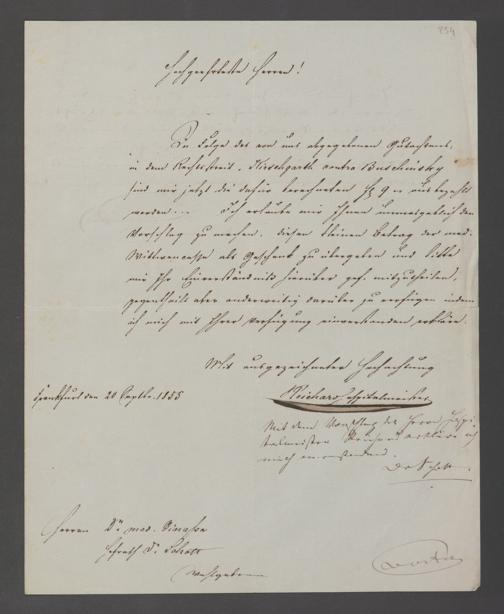 254
Hochgeehrteste Herren!
In Folge des von uns abgegebenen Gutachtens,
in dem Rechtsstreit, Hirschgarth contra Buschinsky
sind mir jetzt die dafür berechneten f 9 ausbezahlt
worden. Ich erlaube mir Ihnen unmaasgeblich den
Vorschlag zu machen, diesen kleinen Betrag der med.
Wittwencasse als Geschenk zu übergeben und bitte
mir Ihr Einverständniß hierüber gef. mitzutheilen,
gegentheils aber anderweitig darüber zu verfügen indem
ich mich mit Ihrer Verfügung einverstanden erkläre.
Mit ausgezeichneter Hochachtung
Frankfurt den 20 Septbr. 1855
Reichard Hospitalmeister
Mit dem Vorschlag des Herrn Hospi-
talmeister Reichard erkläre ich
mich einverstanden.
Dr
Herren Dr. med.
Hofrath Dr.